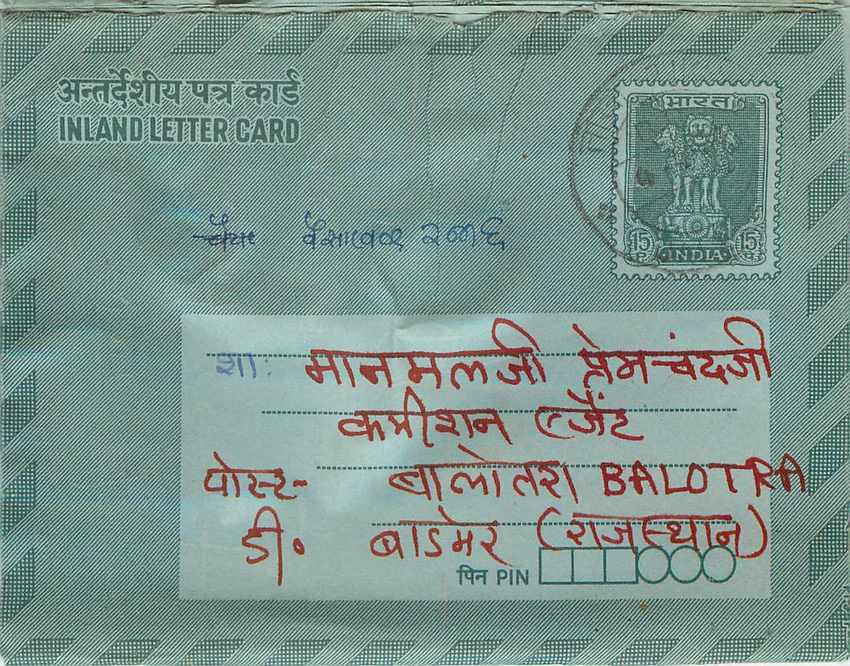 अन्तर्देशीय पत्र कार्ड
INLAND LETTER CARD
भारत
15 P. 15 P.
INDIA
शा: मानमलजी प्रेमचंदजी
कमीशन एजेंट
पोस्ट- बालोतरा BALOTRA
डी० बाडमेर (राजस्थान)
पिन PIN